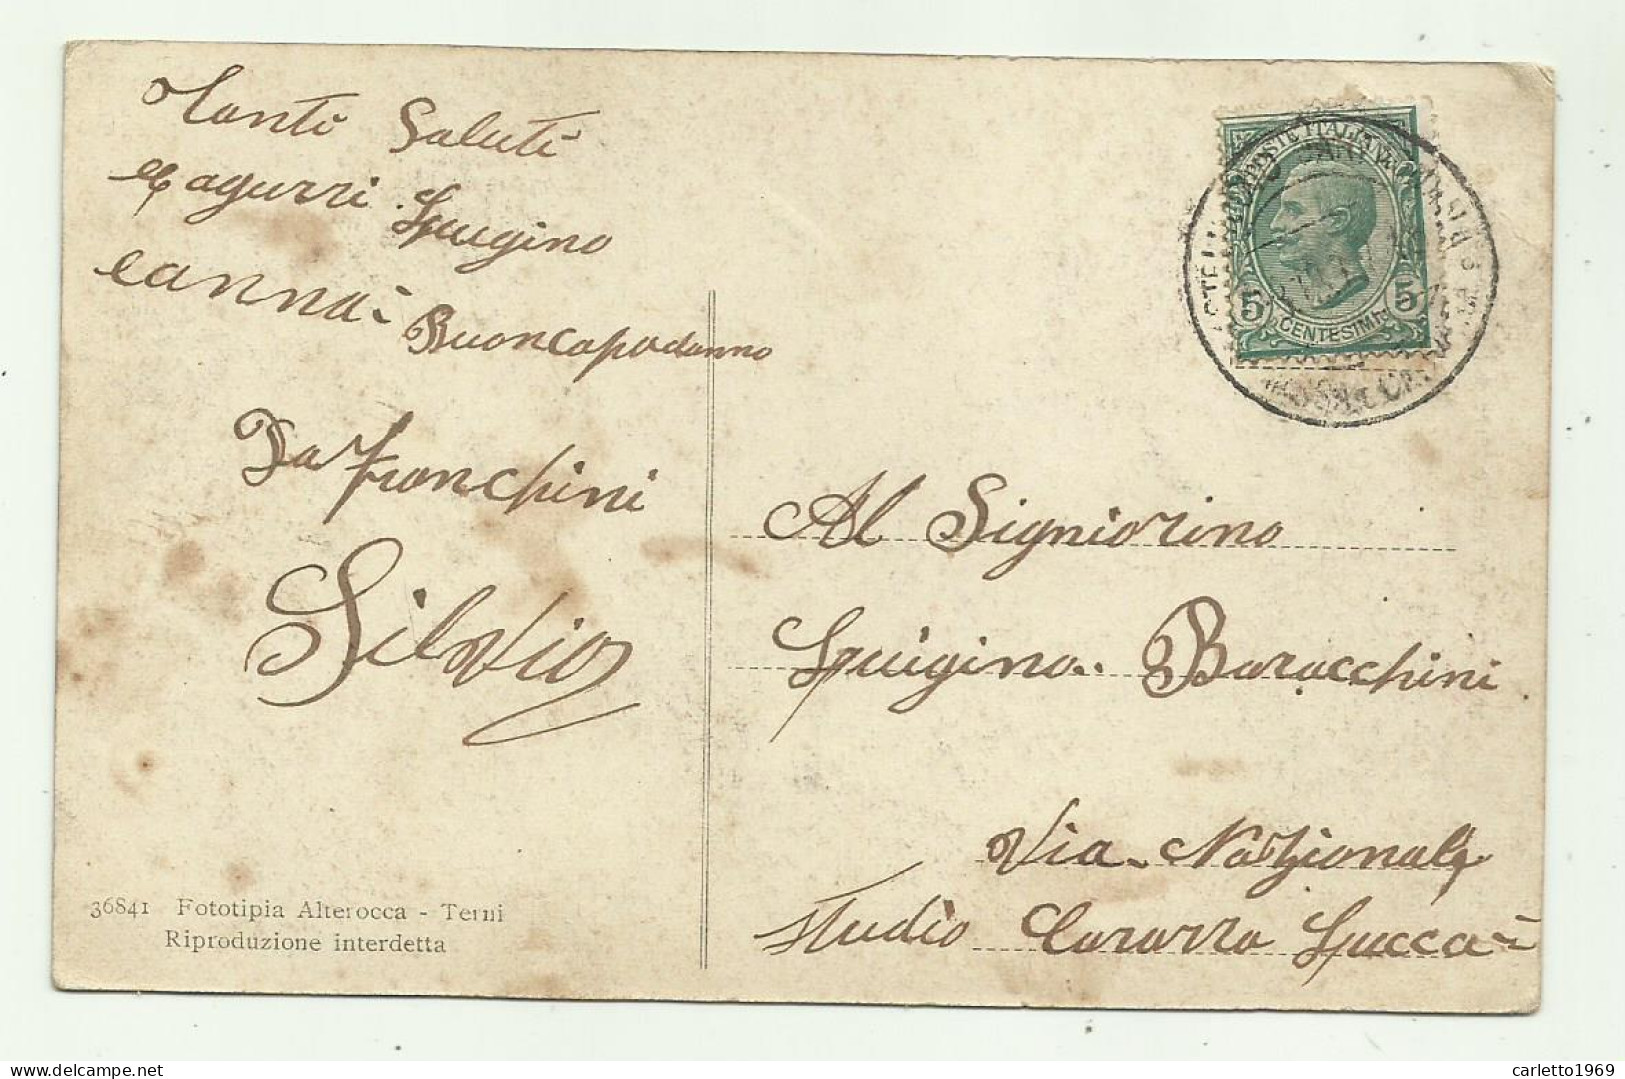 Tanti Saluti
e agurri Luigino
e anna
Buoncapodanno
Da Franchini
Silvio
36841 Fototipia Alterocca - Terni
Riproduzione interdetta
POSTE ITALIANE
5 5
CENTESIMI
Al Signiorino
Luigino Baracchini
Via Nazzionale
Studio Cararra Lucca
carletto1969